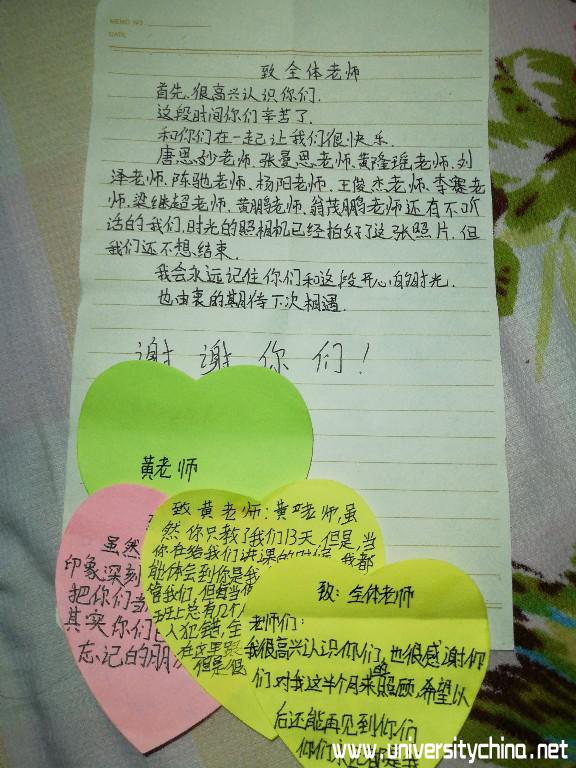 MEMO NO
DATE
致全体老师
首先,很高兴认识你们.
这段时间你们辛苦了.
和你们在一起让我们很快乐.
唐思妙老师.张曼恩老师.黄隆瑶老师.刘
泽老师.陈驰老师.杨阳老师.王俊杰老师.李赛老
师.梁继超老师.黄鹏老师.翁茂鹏老师还有不听
话的我们,时光的照相机已经拍好了这张照片.但
我们还不想结束.
我会永远记住你们和这段开心的时光.
也由衷的期待下次相遇.
谢谢你们!
黄老师
虽然
印象深刻
把你们当
其实你们
忘记的朋
致黄老师:黄老师,虽
然你只教了我们13天.但是,当
你在给我们讲课的时候,我都
能体会到你是我
管我们,但每当
班上总有几个人
人犯错,全
但是很
致:全体老师
老师们:
我很高兴认识你们,也很感谢你
们对我这半个月来的照顾,希望以
后还能再见到你们
www.universitychina.net